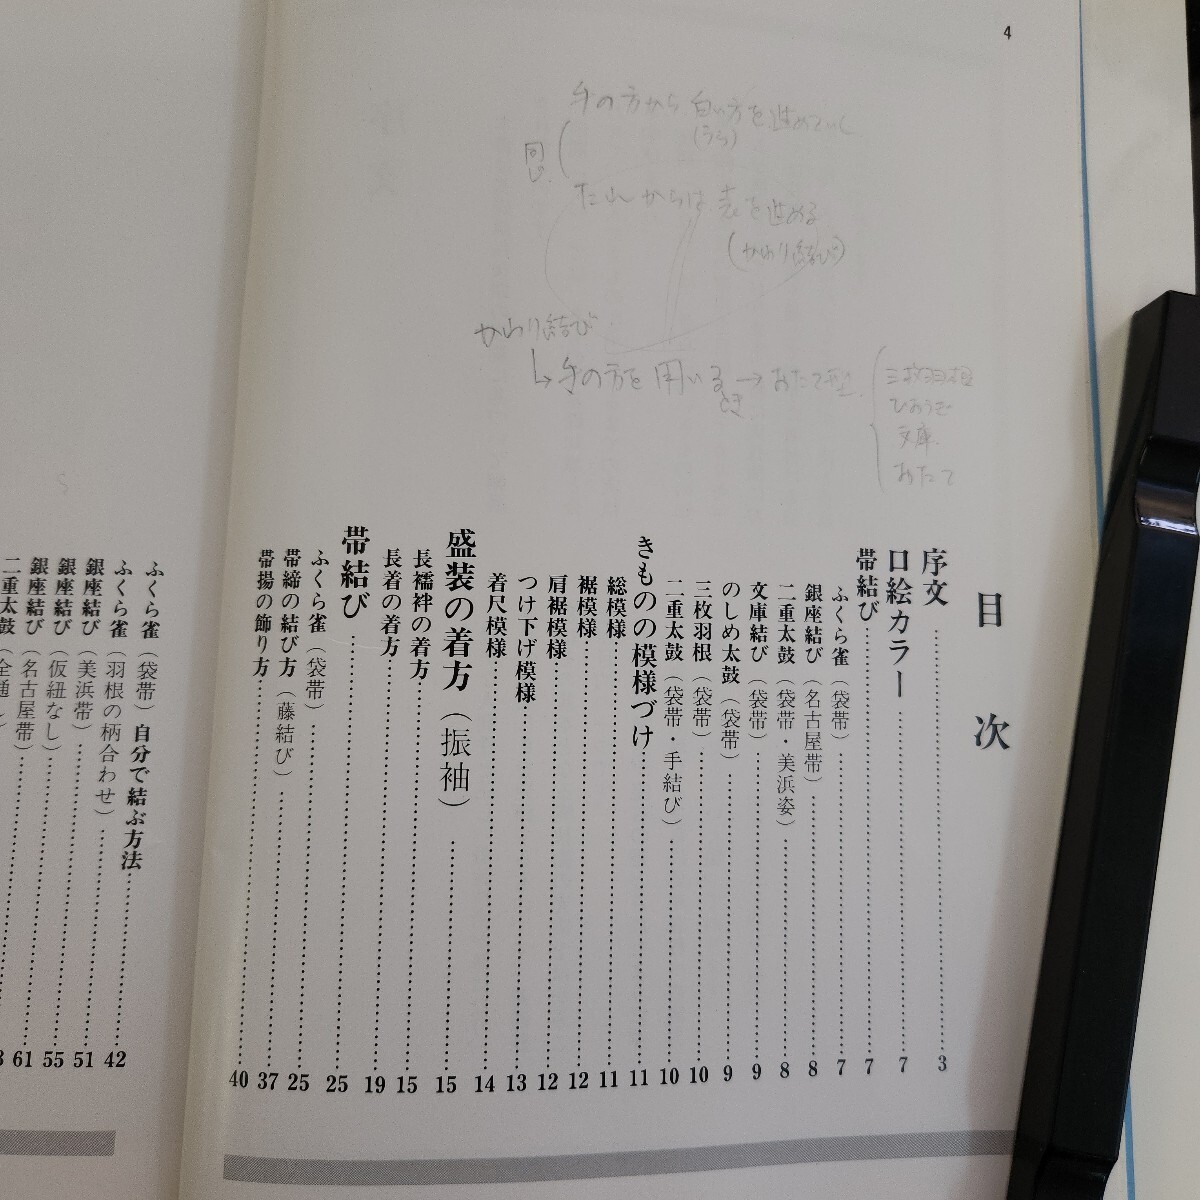 4
手の方から 白い方を進めていく
(うら)
同じ
たれからは 表を進める
(かわり結び)
かわり結び
↳手の方を用いるとき→おたて型
三枚羽根
ひおうぎ
文庫
おたて
目次
序文……3
口絵カラー……7
帯結び……7
ふくら雀（袋帯）……7
銀座結び（名古屋帯）……8
二重太鼓（袋帯・美浜姿）……8
文庫結び（袋帯）……9
のしめ太鼓（袋帯）……9
三枚羽根（袋帯）……10
二重太鼓（袋帯・手結び）……10
きものの模様づけ……11
総模様……11
裾模様……12
肩裾模様……12
つけ下げ模様……13
着尺模様……14
盛装の着方（振袖）……15
長襦袢の着方……15
長着の着方……19
帯結び……25
ふくら雀（袋帯）……25
帯締の結び方（藤結び）……37
帯揚の飾り方……40
ふくら雀（袋帯）自分で結ぶ方法……42
ふくら雀（羽根の柄合わせ）……51
銀座結び（美浜帯）……55
銀座結び（仮紐なし）……61
銀座結び（名古屋帯）
二重太鼓（全通し）